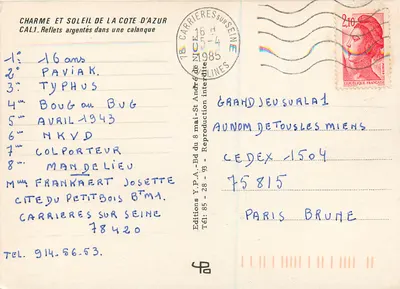 CHARME ET SOLEIL DE LA COTE D'AZUR
CAL1. Reflets argentés dans une calanque
1° 16 ans
2° PAVIAK.
3° TYPHUS
4me BOUG ou BUG
5me AVRIL 1943
6me NKVD
7me COLPORTEUR
8me MANDELIEU
Mme FRANKAERT JOSETTE
CITE DU PETIT BOIS BTM1.
CARRIERES SUR SEINE
78420
TEL. 914.56.53.
Editions Y.P.A.-Bd du 8 mai-St André de
Tél: 85-28-93 - Reproduction interdite
78 CARRIERES SUR SEINE
16 H
-4
1985
YVELINES
2,10
GRAND JEU SUR LA 1
AU NOM DE TOUS LES MIENS
CEDEX 1504
75815
PARIS BRUNE